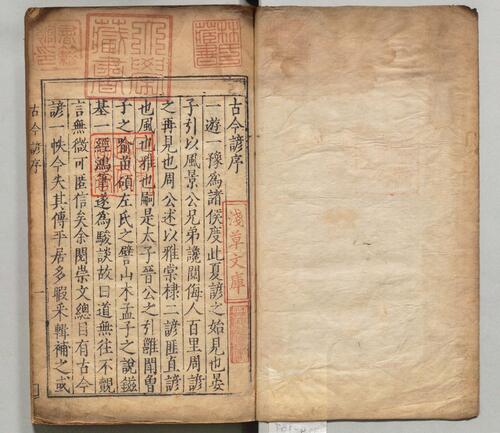 林氏藏書
淺草文庫
古今諺序
一遊一豫為諸侯度此夏諺之始見也晏
子引以風景公兄弟讒鬩侮人百里周諺
之再見也周公述以雅棠棣二諺匪直諺
也風也雅也嗣是太子晉公之引雝閗曾
子之喻苗碩左氏之譬山木孟子之說鎡
基 經鴻筆遂為駿談故曰道無往不覿
言無微可匿信矣余閱崇文總目有古今
諺一帙今失其傳平居多暇采輯補之或
古今諺序
一